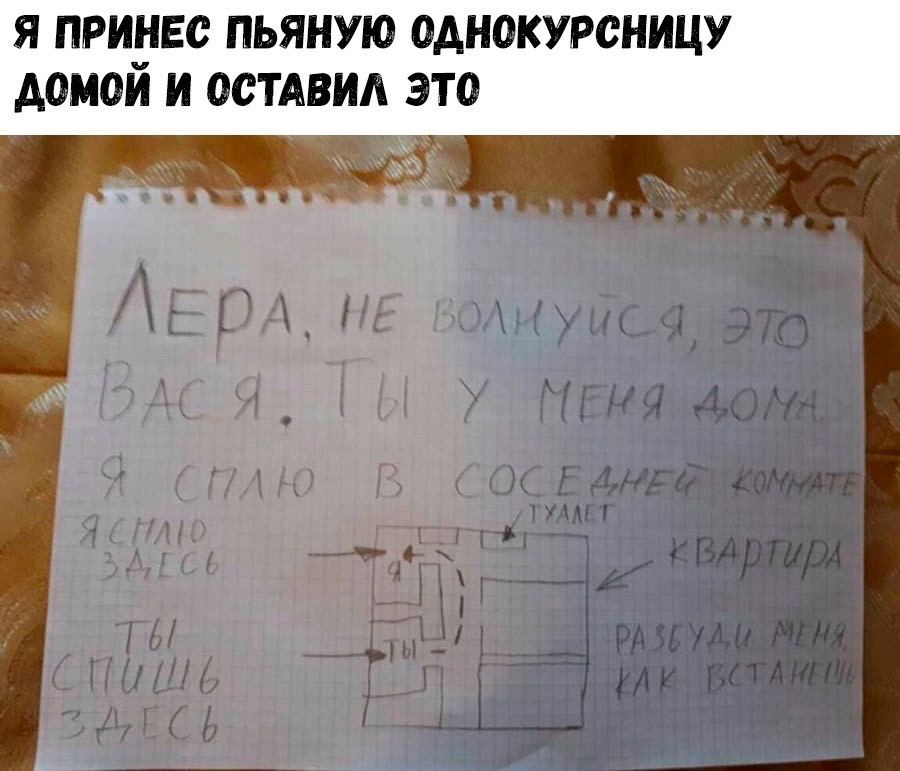 Я ПРИНЕС ПЬЯНУЮ ОДНОКУРСНИЦУ
ДОМОЙ И ОСТАВИЛ ЭТО
ЛЕРА, НЕ ВОЛНУЙСЯ, ЭТО
ВАСЯ. ТЫ У МЕНЯ ДОМА.
Я СПЛЮ В СОСЕДНЕЙ КОМНАТЕ
Я СПЛЮ
ЗДЕСЬ
ТУАЛЕТ
Я
КВАРТИРА
ТЫ
СПИШЬ
ЗДЕСЬ
ТЫ
РАЗБУДИ МЕНЯ,
КАК ВСТАНЕШЬ